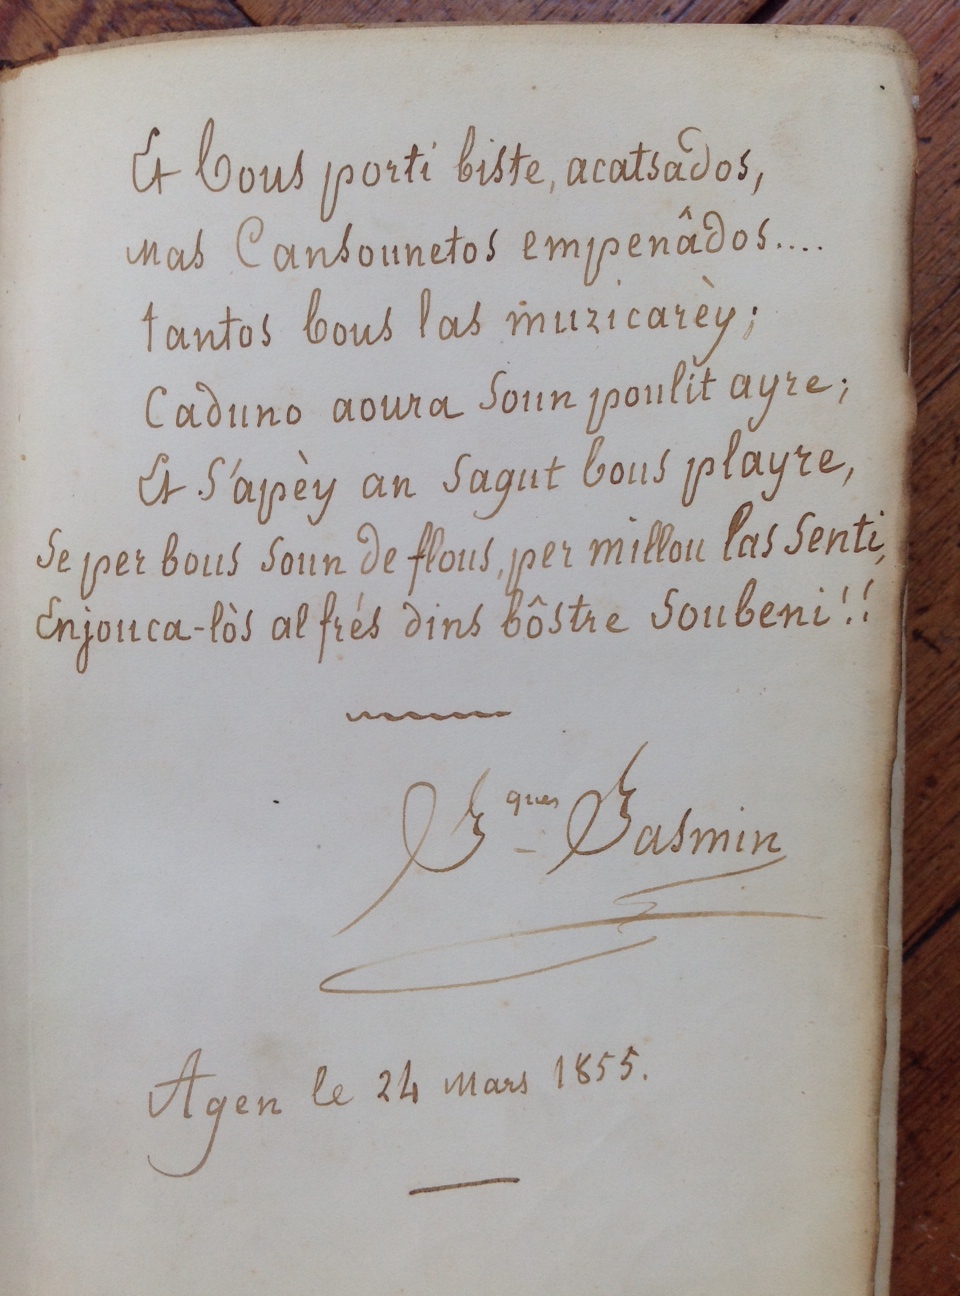 Et bous porti biste, acatsados,
mas Cansounetos empenâdos....
tantos bous las muzicarèy;
Caduno aoura soun poulit ayre;
Et s'apèy an sagut bous playre,
Se per bous soun de flous, per millou las senti,
Enjouca-lòs al frés dins bôstre soubeni!!
Jques Jasmin
Agen le 24 Mars 1855.